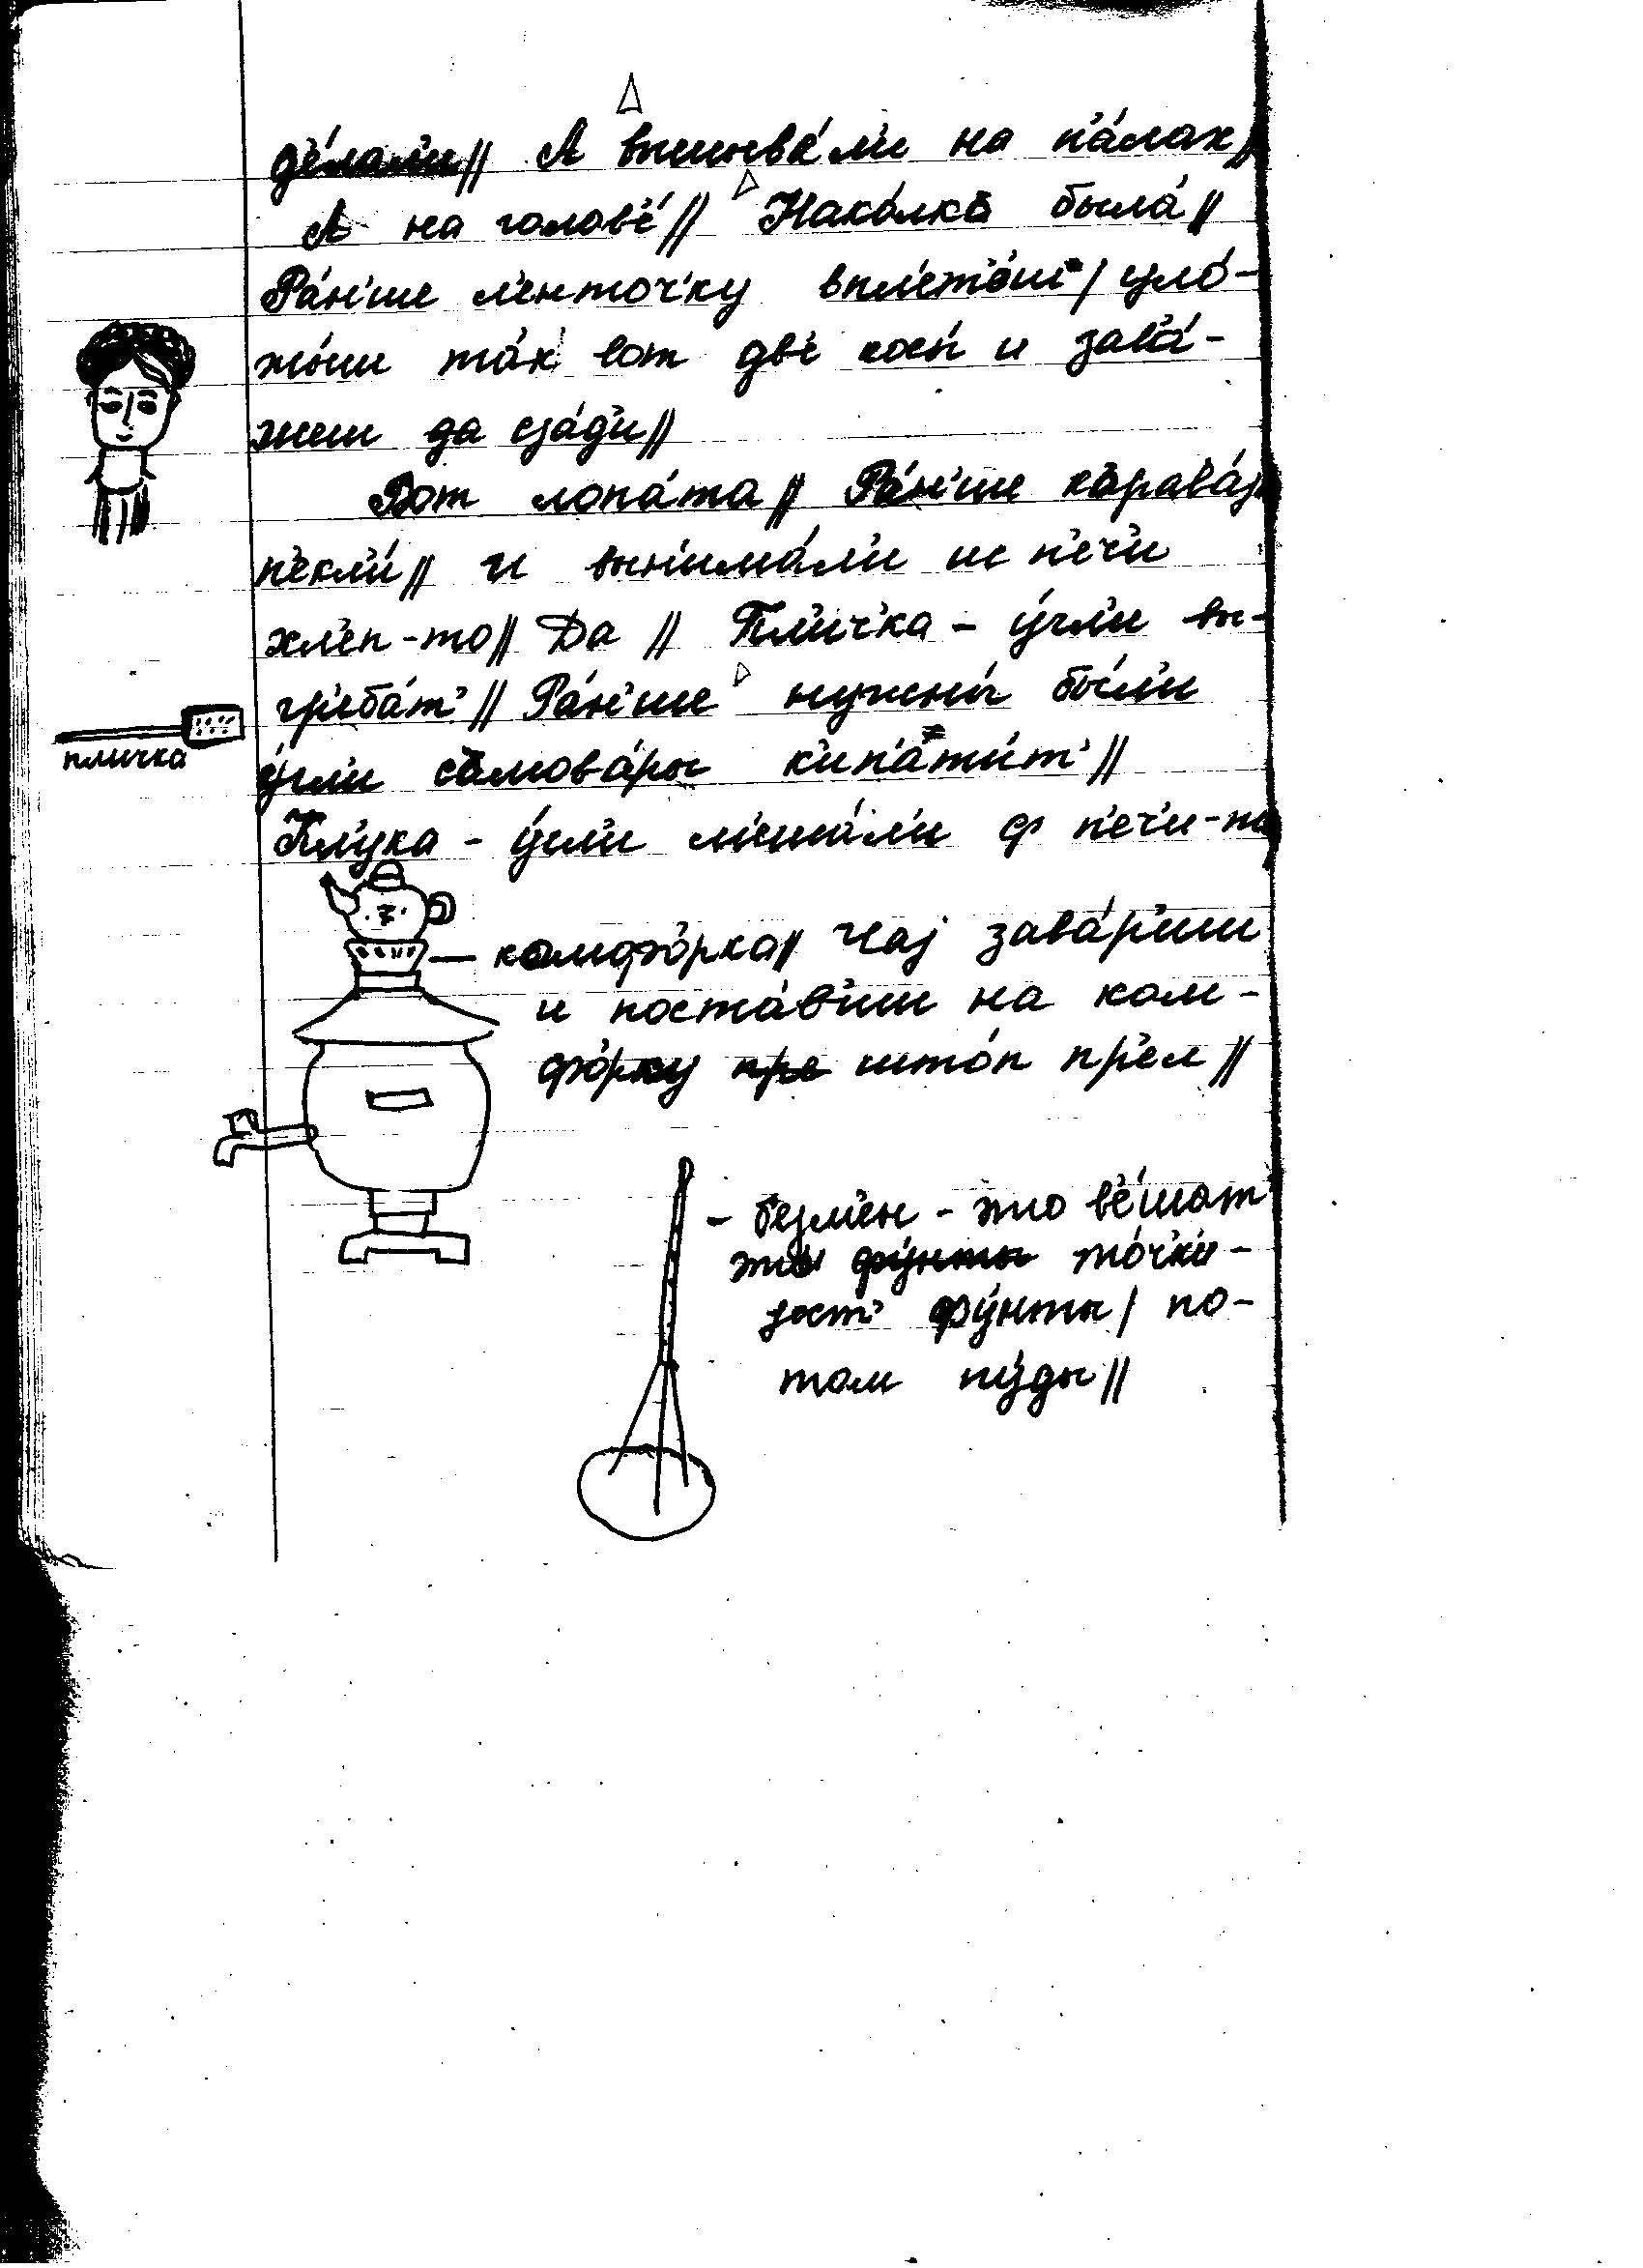 д'е́лал'и// А вышыва́л'и на п'а́лах//
А на голов'е́// Нако́лка была́//
Ра́н'ше л'енточ'ку впл'ет'о́ш/ уло́-
жыш та́к вот дв'е косы́ и зав'а́-
жеш да сзад'и//
Вот лопа́та// Ра́н'ше карава́j
п'екл'и́// и вын'има́л'и ис п'еч'и
хл'еп-то// Да // Пл'ич'ка - у́гл'и вы-
гр'еба́т'// Ра́н'ше нужны́ бы́л'и
пличка
у́гл'и самова́ры к'ип'ат'и́т'//
Кл'ука - у́гл'и м'еша́л'и ф п'еч'и-то
— комфо́рка// Чаj зава́р'иш
и поста́в'иш на ком-
фо́рку што́п пр'ел //
- безм'ен - это в'е́шат'
это то́чк'и-
jест' фу́нты/ по-
том пу́ды//